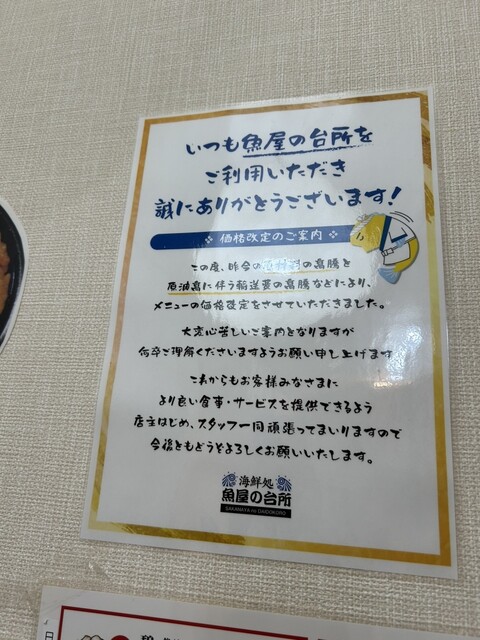 いつも魚屋の台所を
ご利用いただき
誠にありがとうございます!
価格改定のご案内
この度、昨今の原材料の高騰と
原油高に伴う輸送費の高騰などにより、
メニューの価格改定をさせていただきました。
大変心苦しいご案内となりますが
何卒ご理解くださいますようお願い申し上げます
これからもお客様みなさまに
より良い食事・サービスを提供できるよう
店主はじめ、スタッフ一同頑張ってまいりますので
今後ともどうぞよろしくお願いいたします。
海鮮処
魚屋の台所
SAKANAYA no DAIDOKORO